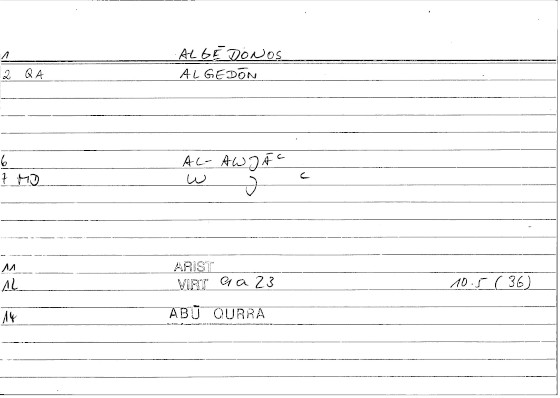 1 ALGĒDONOS
2 QA ALGEDŌN
6 AL-AWJĀʿ
7 MD W J ʿ
11 ARIST
12 VIRT 9a23 10.5 (36)
14 ABŪ QURRA